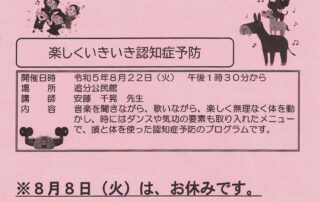 楽しくいきいき認知症予防
開催日時 令和5年8月22日(火) 午後1時30分から
場所 追分公民館
講師 安藤 千晃 先生
内容 音楽を聞きながら、歌いながら、楽しく無理なく体を動
かし、時にはダンスや気功の要素も取り入れたメニュー
で、頭と体を使った認知症予防のプログラムです。
※8月8日(火)は、お休みです。